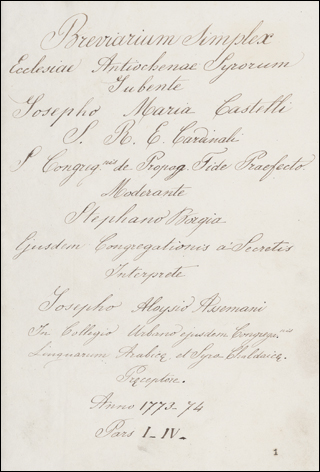 Breviarium Simplex
Ecclesiae Antiochenae Syrorum
Jubente
Josepho Maria Castelli
S. R. E. Cardinali
S Congreg.nis de Propag Fide Praefecto
Moderante
Stephano Borgia
Ejusdem Congregationis a Secretis
Interprete
Josepho Aloysio Assemani
In Collegio Urbano ejusdem Congreg.nis
Linguarum Arabicę et Syro Chaldaicę
Pręceptore.
Anno 1773-74
Pars I-IV-
1